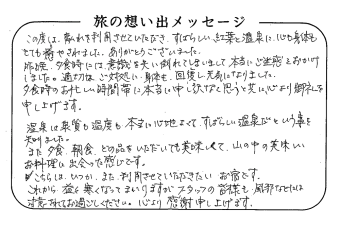 旅の想い出メッセージ
この度は、離れを利用させていただき、すばらしい紅葉と温泉に、心も身体も
とても癒やされました。ありがとうございました。
昨夜、夕食時には、意識を失い倒れてしまいまして本当にご迷惑をおかけ
しました。適切なご対処に身体も、回復し元気になりました。
夕食時のお忙しい時間帯に本当に申し訳なく思うと共に心より御礼を
申し上げます。
温泉は泉質も温度も本当に心地よくて、すばらしい温泉だという事を
知りました。
また夕食、朝食、どの品をいただいても美味しくて、山の中の美味しい
お料理に出会った感じです。
こちらは、いつか、また、利用させていただきたいお宿です。
これから益々寒くなってまいりますがスタッフの皆様も風邪などには
注意されてお過ごしください。心より感謝申し上げます。